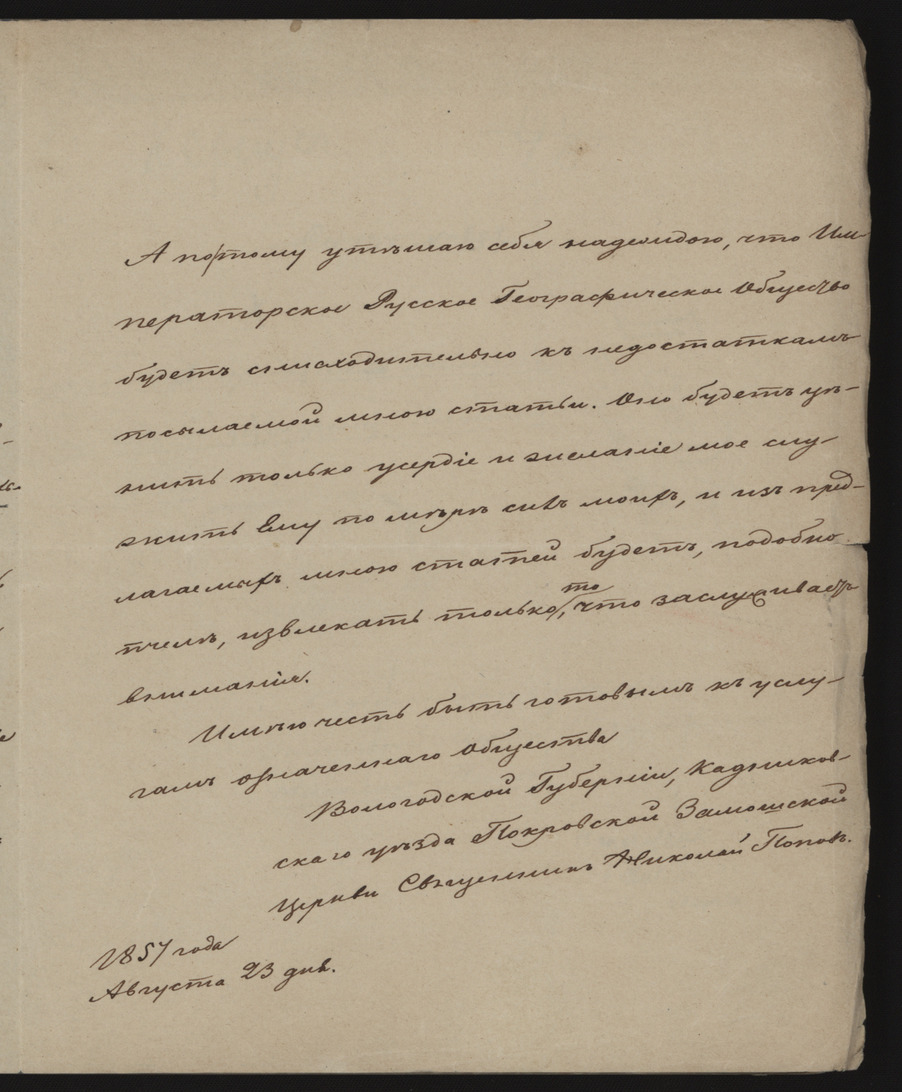 А потому утѣшаю себя надеждою, что Им-
ператорское Русское Географическое Общество
будетъ снисходительно къ недостаткамъ
посылаемой мною статьи. Оно будетъ цѣ-
нить только усердіе и желаніе мое слу-
жить Ему по мѣрѣ силъ моихъ, и изъ пред-
лагаемыхъ мною статей будетъ, подобно
пчелѣ, извлекать только, то что заслуживаетъ
вниманія.
Имѣю честь быть готовымъ къ услу-
гамъ означеннаго Общества
Вологодской Губерніи, Кадников-
скаго уѣзда Покровской Замошской
Церкви Священникъ Николай Поповъ.
1857 года
Августа 23 дня.